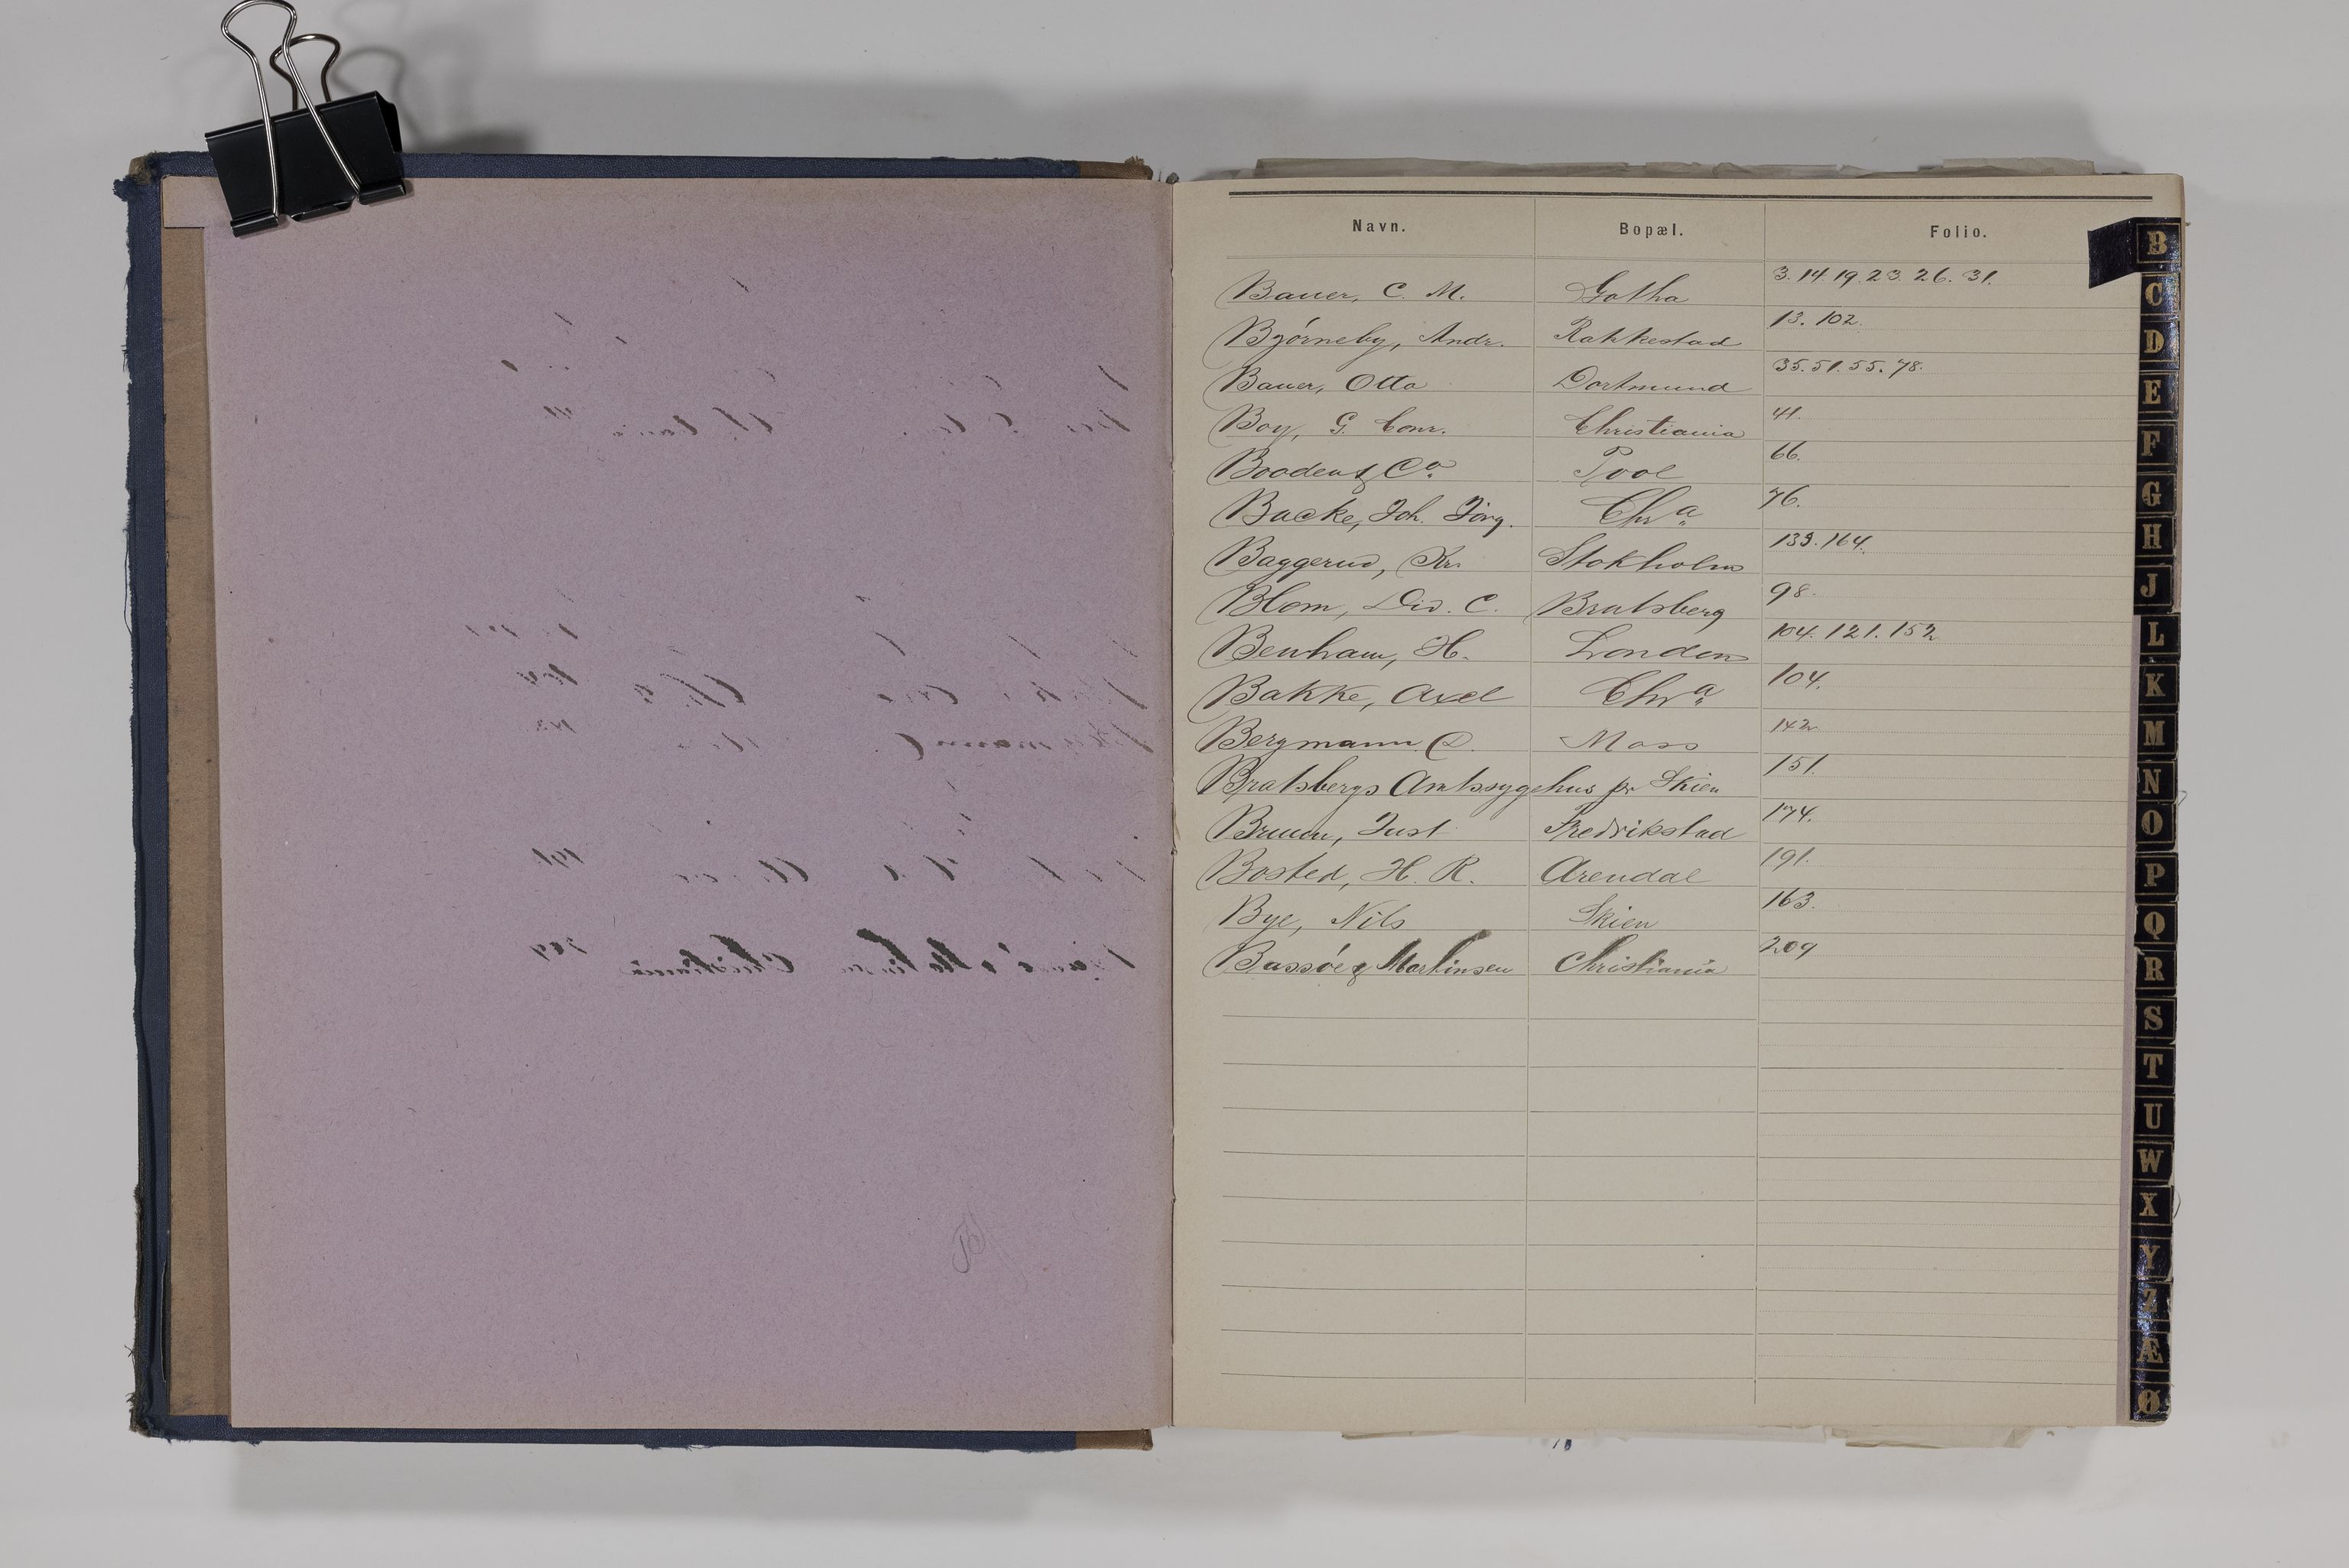 Navn. Bopæl. Folio.
Bauer, C. M. Gotha 3. 14. 19. 23. 26. 31.
Bjórneby, Andr. Rakkestad 13. 102.
Bauer, Otto Dortmund 35. 51. 55. 78.
Boy, G. Conr. Christiania 41.
Booden & Co. Pool 66.
Backe, Joh. Jörg. Chra. 76.
Baggerud, Kr. Stokholm 133. 164.
Blom, Div. C. Bratsberg 98.
Benham, H. London 104. 121. 152
Bakke, Axel Chra. 104.
Bergmann D. Moss 142
Bratsbergs Amtssygehus pr Skien 151.
Bruun, Just Fredrikstad 174.
Bosted, H. R. Arendal 191.
Bye, Nils Skien 163.
Bassóe & Martinsen Christiania 209
B
C
D
E
F
G
H
J
L
K
M
N
O
P
Q
R
S
T
U
W
X
Y
Z
Æ
Ø